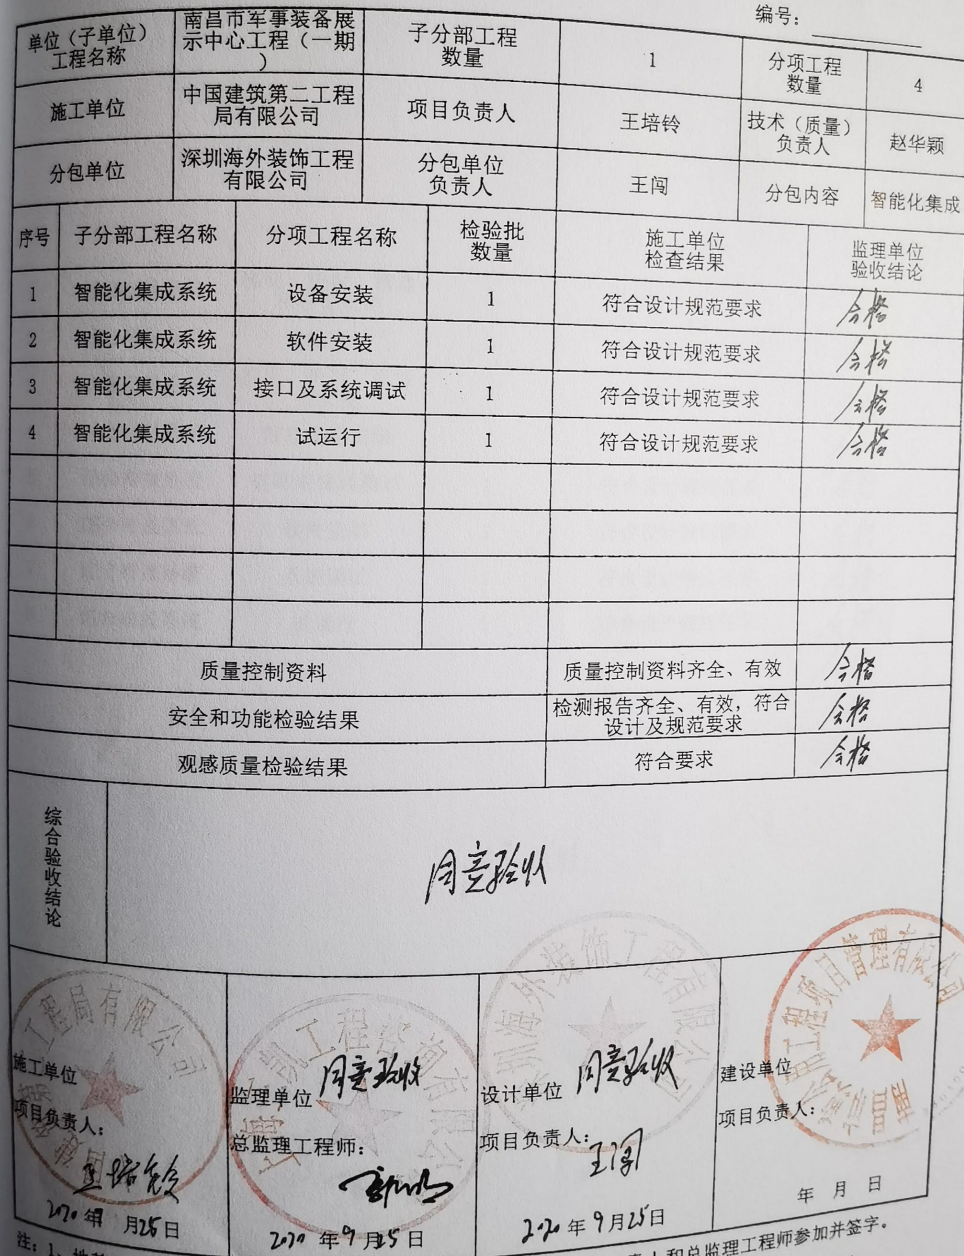 编号：
单位（子单位）
工程名称
南昌市军事装备展
示中心工程（一期
）
子分部工程
数量
1
分项工程
数量
4
施工单位
中国建筑第二工程
局有限公司
项目负责人
王培铃
技术（质量）
负责人
赵华颖
分包单位
深圳海外装饰工程
有限公司
分包单位
负责人
王闯
分包内容
智能化集成
序号
子分部工程名称
分项工程名称
检验批
数量
施工单位
检查结果
监理单位
验收结论
1 智能化集成系统 设备安装 1 符合设计规范要求 合格
2 智能化集成系统 软件安装 1 符合设计规范要求 合格
3 智能化集成系统 接口及系统调试 1 符合设计规范要求 合格
4 智能化集成系统 试运行 1 符合设计规范要求 合格
质量控制资料 质量控制资料齐全、有效 合格
安全和功能检验结果
检测报告齐全、有效，符合
设计及规范要求
合格
观感质量检验结果 符合要求 合格
综合验收结论
同意验收
施工单位
项目负责人：
王培铃
2020年9月25日
监理单位
同意验收
总监理工程师：
2020年9月25日
设计单位
同意验收
项目负责人：
王闯
2020年9月25日
建设单位
项目负责人：
年 月 日
注：1、
人和总监理工程师参加并签字。